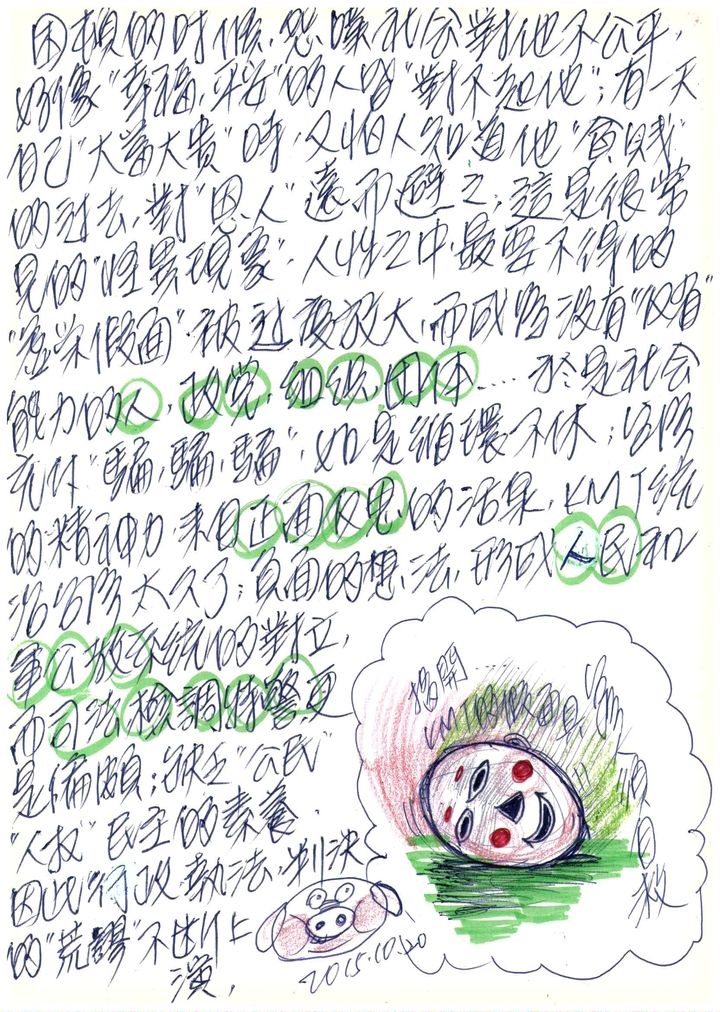 困頓的时候,怨嘆社会對他不公平,
好像"幸福,平安"的人皆"對不起他";有一天
自己"大富大貴"時,又怕人知道他"貧賤"
的过去,對"恩人"遠而避之;這是很常
見的"怪異現象".人性之中,最要不得的
"虛榮假面"被过度放大,而成為沒有"反省"
能力的人,政党,組織,团体....於是社会
充什"騙,騙,騙",如是循環不休;台灣
的精神力,來自正面反思的活泉,KMT統
治台灣太久了;負面的想法,形成人民和
軍公教系統的對立,
而司法檢調特警更
是偏頗;缺乏"公民"
"人权"民主的素養,
因此"行政,執法,判決
的"荒謬"不斷上
演,
2015.10.20
揭開....
KMT的假面具,台灣
須自救